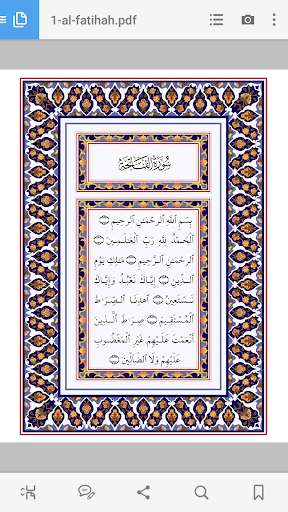 1-al-fatihah.pdf
سُورَةُ الْفَاتِحَةِ
بِسْمِ ٱللَّهِ ٱلرَّحْمَٰنِ ٱلرَّحِيمِ ۝
ٱلْحَمْدُ لِلَّهِ رَبِّ ٱلْعَٰلَمِينَ ۝
ٱلرَّحْمَٰنِ ٱلرَّحِيمِ ۝ مَٰلِكِ يَوْمِ
ٱلدِّينِ ۝ إِيَّاكَ نَعْبُدُ وَإِيَّاكَ
نَسْتَعِينُ ۝ ٱهْدِنَا ٱلصِّرَٰطَ
ٱلْمُسْتَقِيمَ ۝ صِرَٰطَ ٱلَّذِينَ
أَنْعَمْتَ عَلَيْهِمْ غَيْرِ ٱلْمَغْضُوبِ
عَلَيْهِمْ وَلَا ٱلضَّآلِّينَ ۝